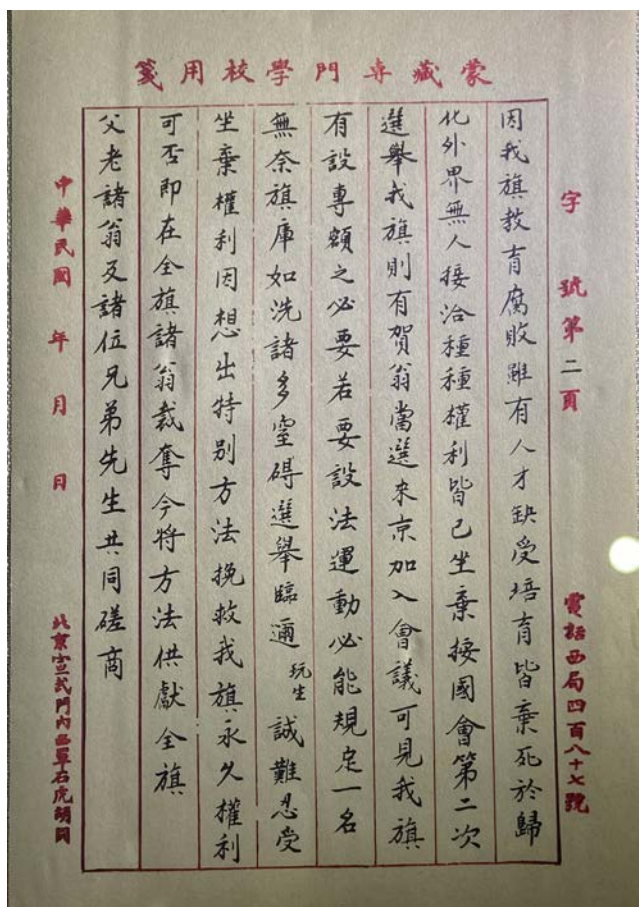 蒙藏專門學校用箋
字　號第二頁
電話西局四百八十七號
因我旗教育腐敗雖有人才缺受培育皆棄死於歸
化外界無人接洽種種權利皆已坐棄按國會第二次
選舉我旗則有賀翁當選來京加入會議可見我旗
有設專額之必要若要設法運動必能規定一名
無奈旗庫如洗諸多窒碍選舉臨邇玩生誠難忍受
坐棄權利因想出特别方法挽救我旗永久權利
可否即在全旗諸翁裁奪今將方法供獻全旗
父老諸翁及諸位兄弟先生共同磋商
中華民國　年　月　日
北京宣武門內西單石虎胡同